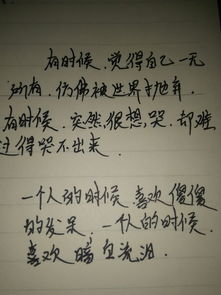 有时候，觉得自己一无
所有，仿佛被世界抛弃．
有时候，突然很想哭，却难
过得哭不出来．
一个人的时候，喜欢傻傻
的发呆．一个人的时候．
喜欢暗自流泪．